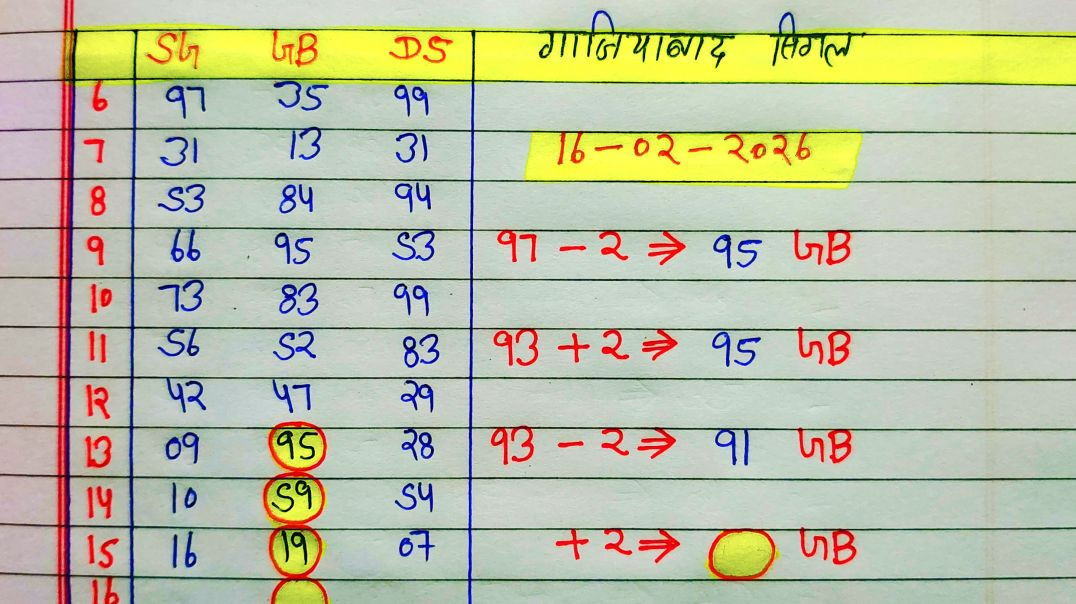 SG GB DS गाजियाबाद सिंगल
6 97 35 99
7 31 13 31 16-02-2026
8 53 84 94
9 66 95 53 97 - 2 ⇒ 95 GB
10 73 83 99
11 56 52 83 93 + 2 ⇒ 95 GB
12 42 47 29
13 09 95 28 93 - 2 ⇒ 91 GB
14 10 59 54
15 16 19 07 + 2 ⇒ GB
16